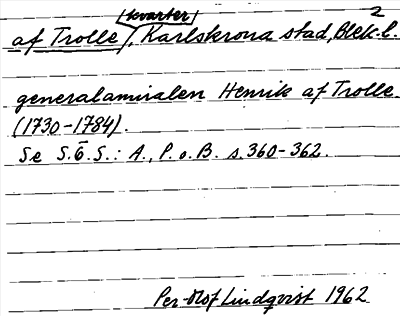 kvarter 2
af Trolle, Karlskrona stad, Blek. l.
generalamiralen Henrik af Trolle
(1730-1784).
Se S.O.S.: A., P. o. B. s. 360-362.
Per-Olof Lindqvist 1962